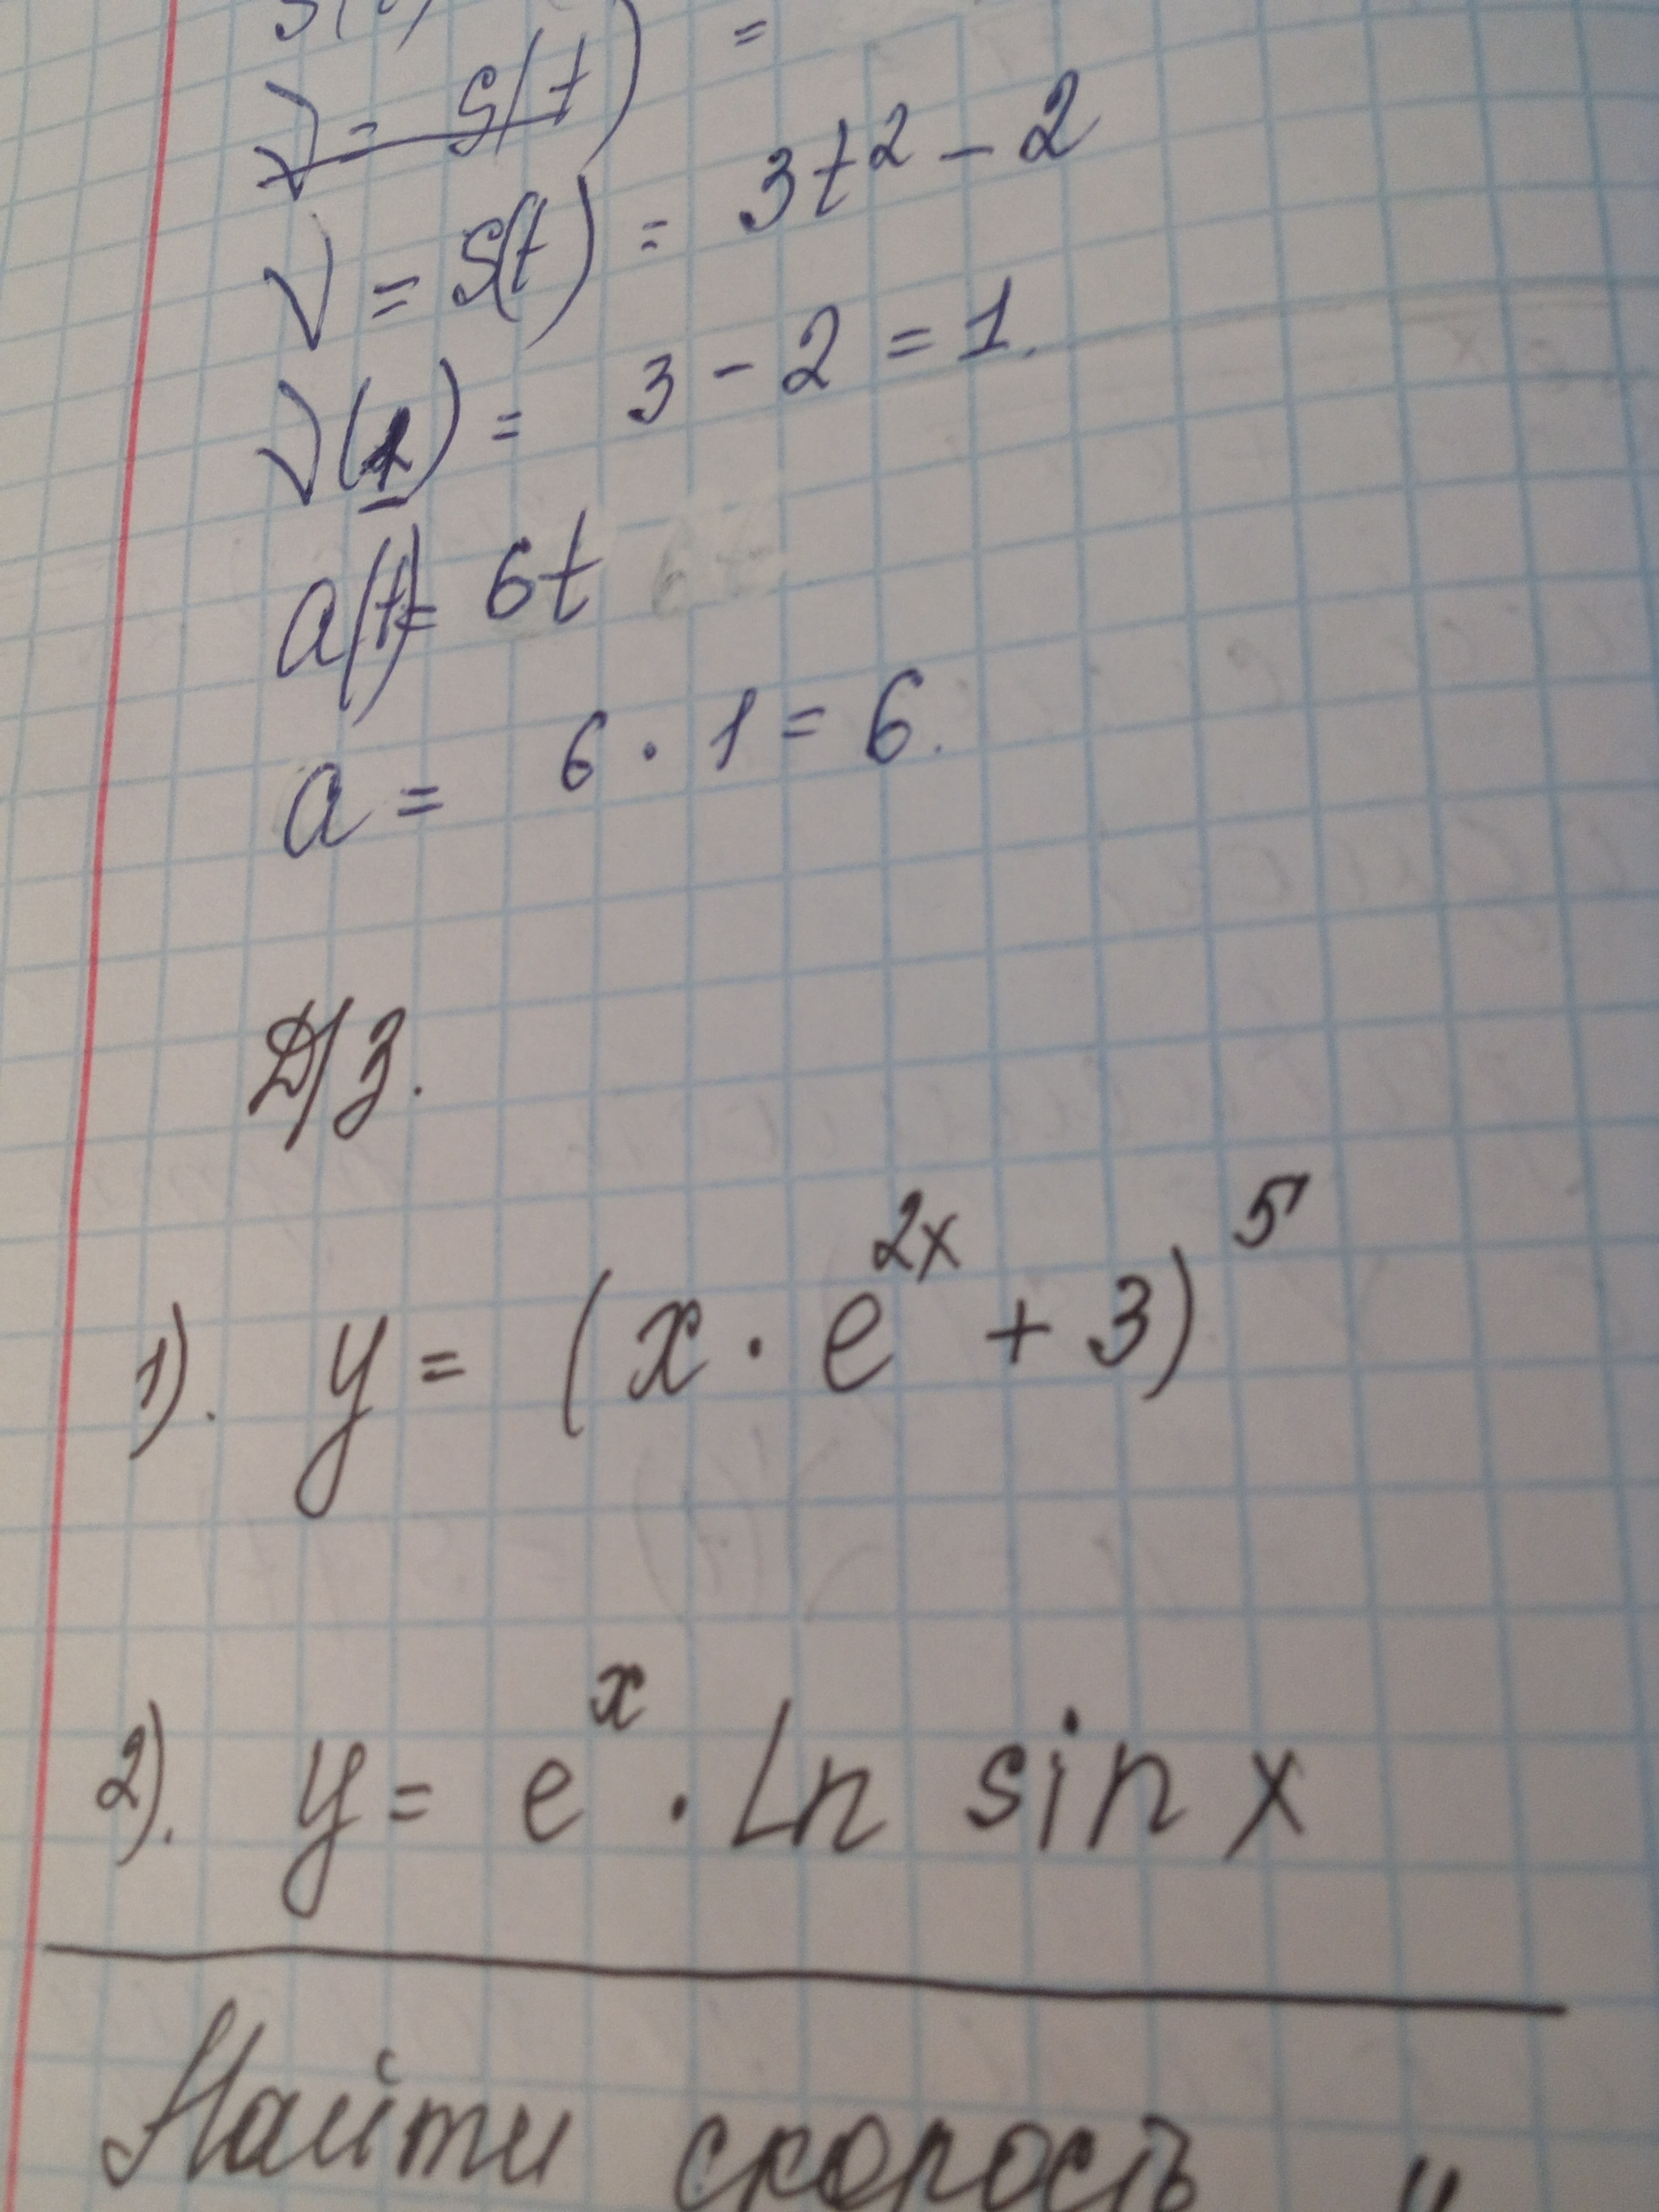 V = S(t) =
V = S(t) = 3t² - 2
V(1) = 3 - 2 = 1.
a(t) = 6t
a = 6 · 1 = 6.
Д/З.
1). y = (x · e²ˣ + 3)⁵
2). y = eˣ · Ln sin x
Найти скорость